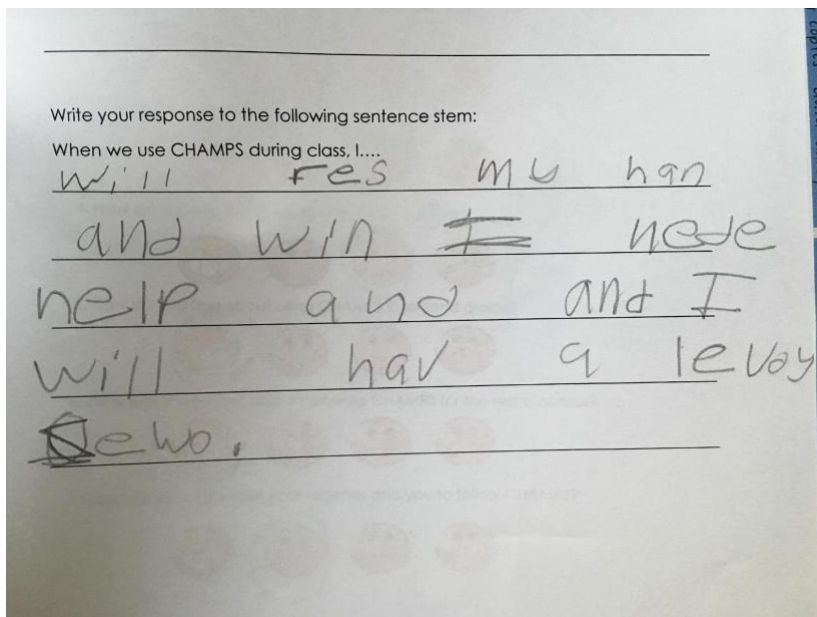 Write your response to the following sentence stem:
When we use CHAMPS during class, I....
will res my han
and win I nede
help and and I
will hav a levoy